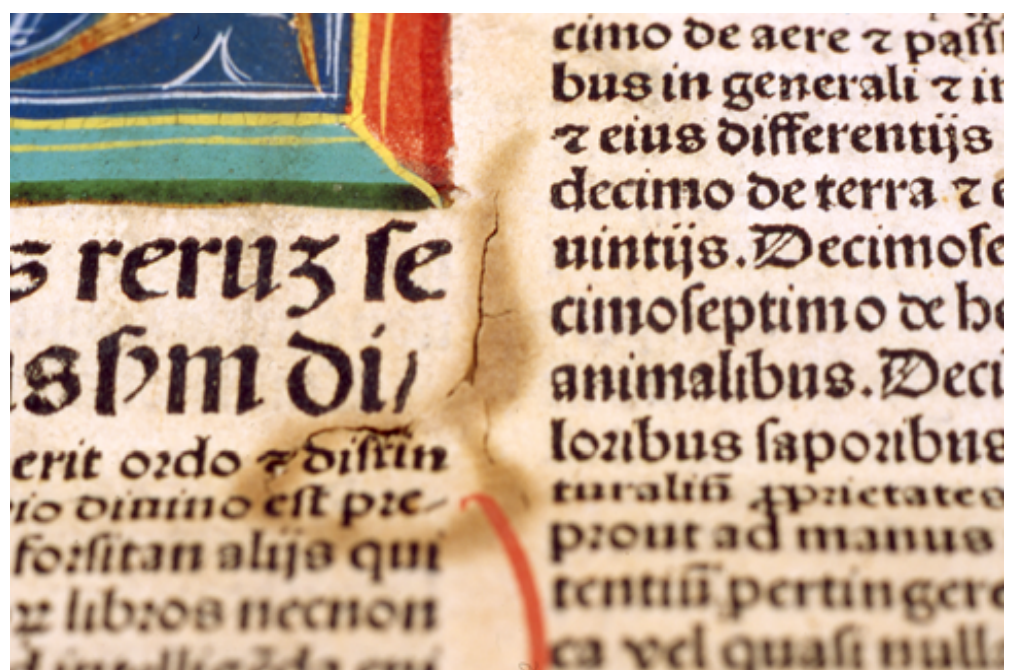 reruʒ ſe
sẜm di/
erit ordo ⁊ diſtin
io diuino eſt pre-
forſitan alijs qui
libros necnon
cimo de aere ⁊ paſſi
bus in generali ⁊ in
⁊ eius differentijs
decimo de terra ⁊ e
uintijs. Decimoſe
cimoſeptimo de he
animalibus. Deci
loribus ſaporibus
turaliū ꝓprietates
prout ad manus
tentiū pertingere
ea vel quaſi nulla